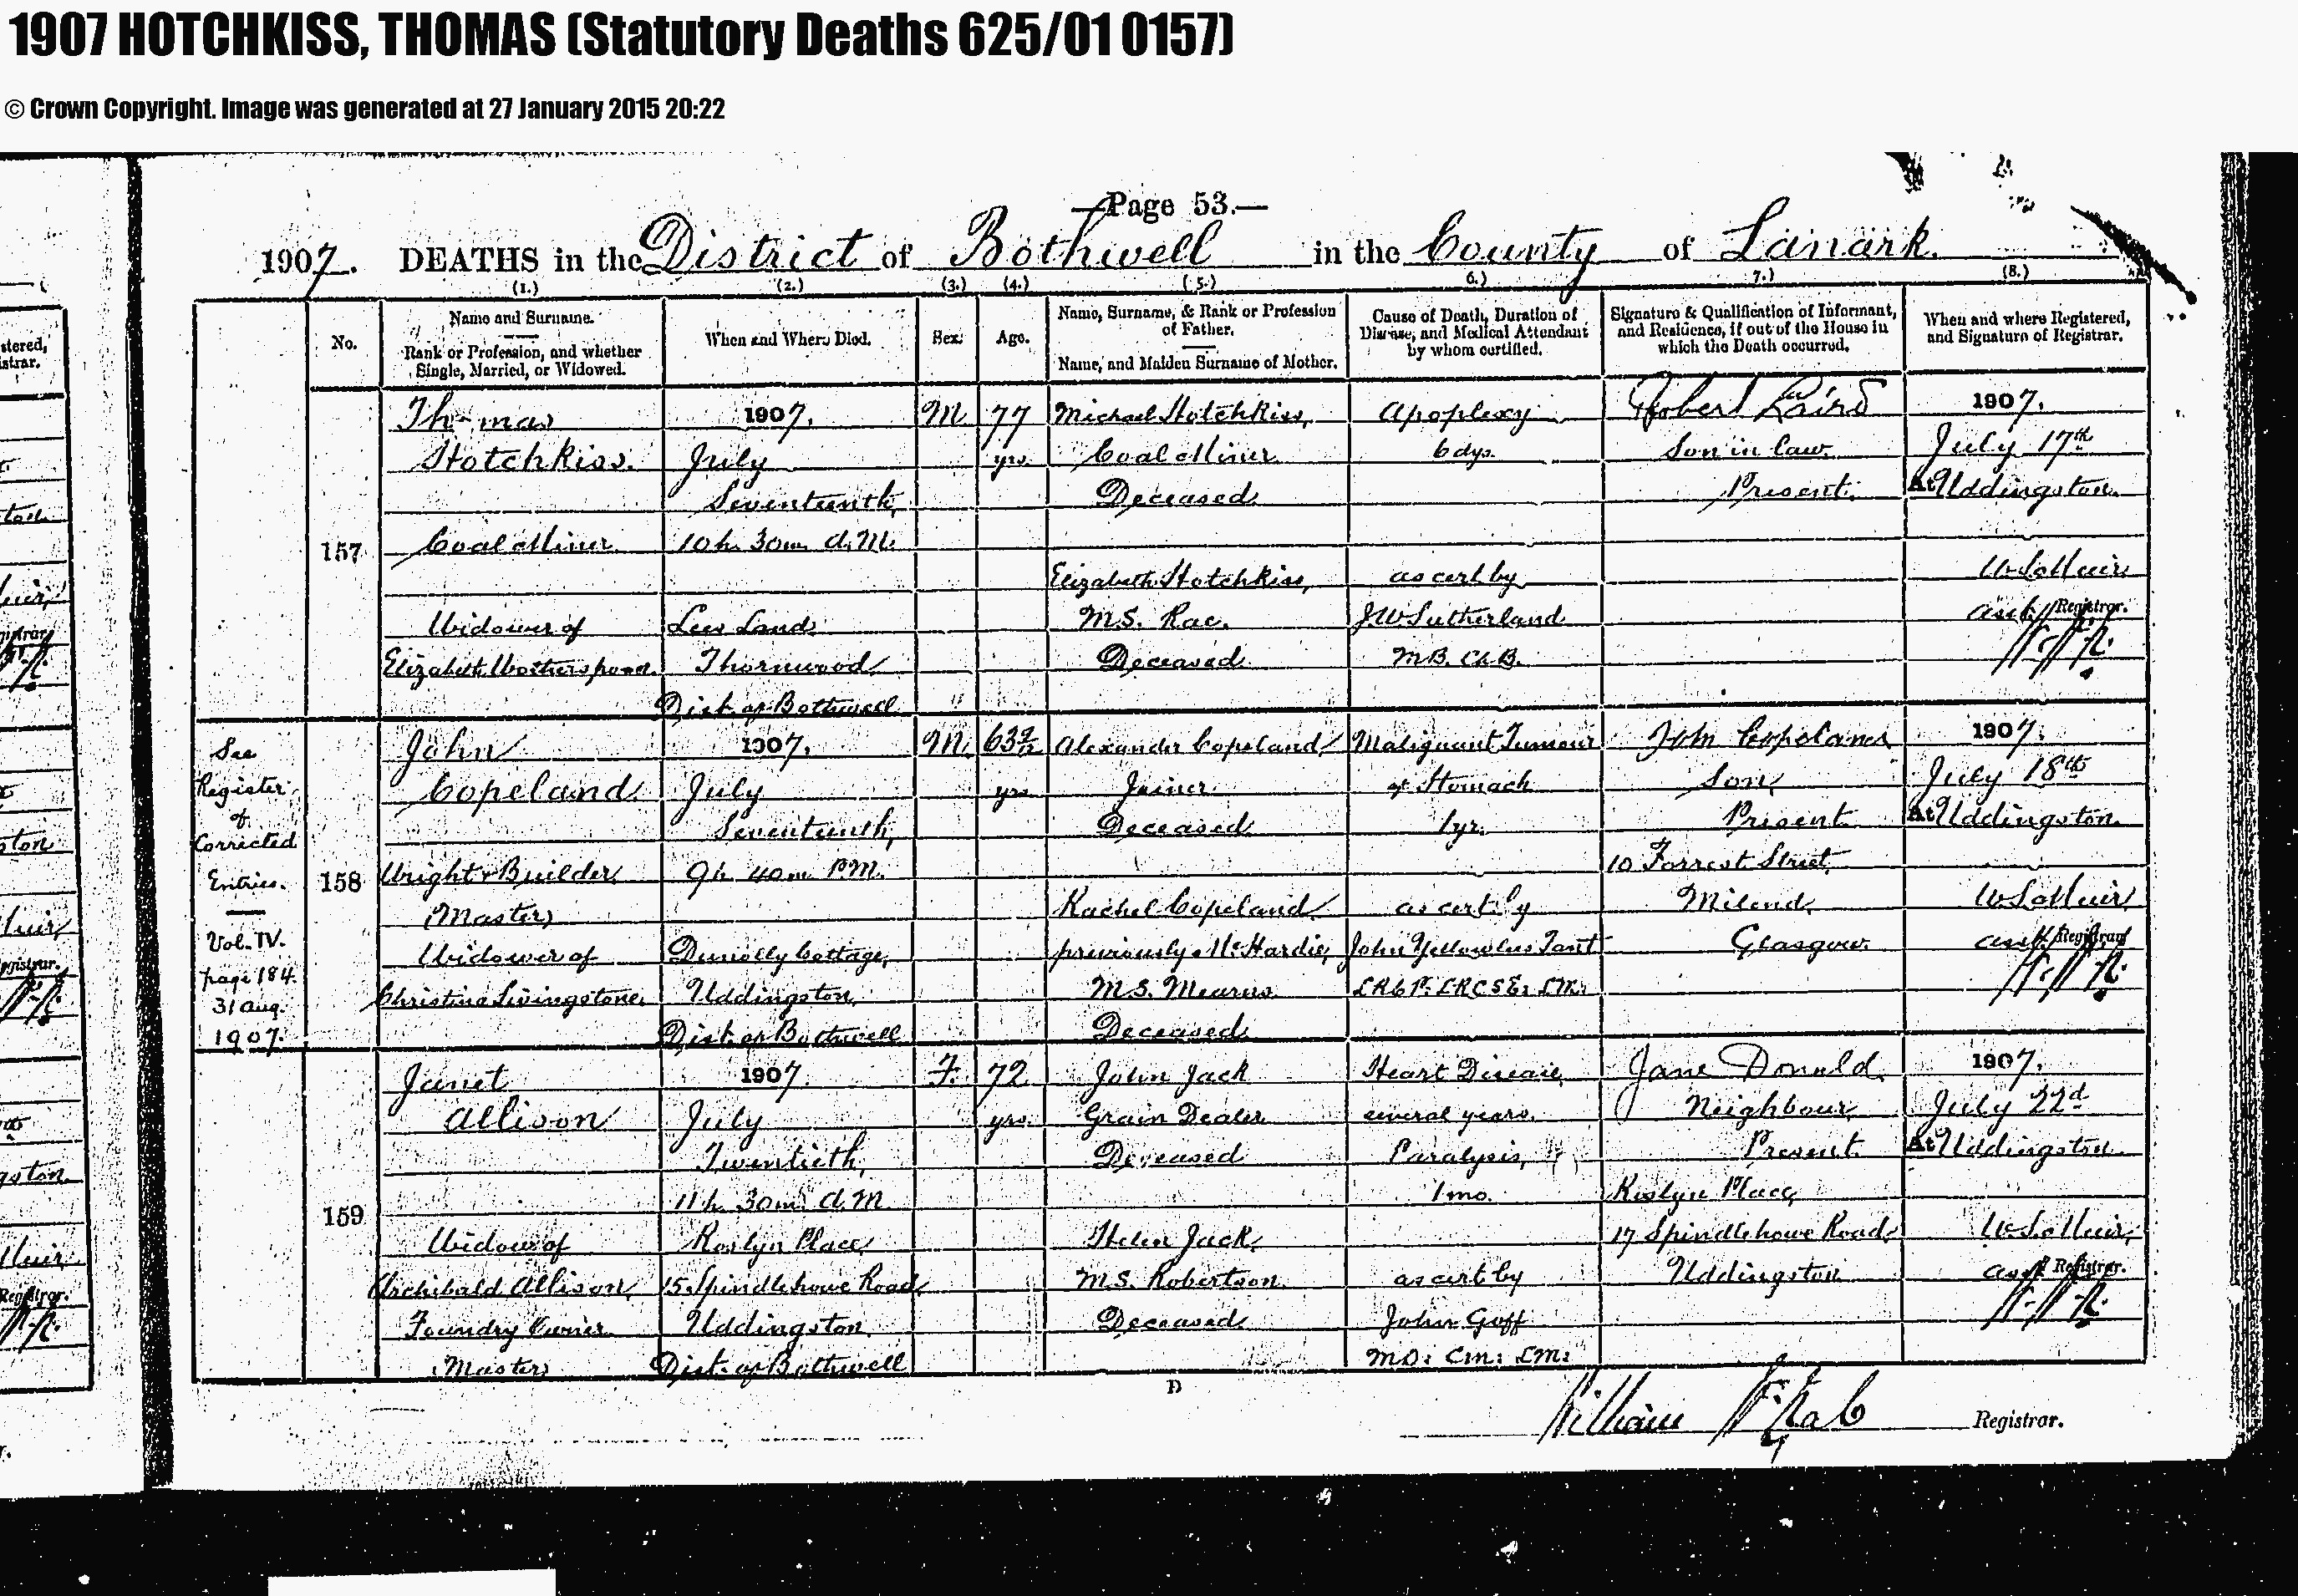 1907 HOTCHKISS, THOMAS (Statutory Deaths 625/01 0157)
© Crown Copyright. Image was generated at 27 January 2015 20:22
—Page 53.—
1907. DEATHS in the District of Bothwell in the County of Lanark.
(1.) (2.) (3.) (4.) (5.) 6.) 7.) (8.)
No.
Name and Surname.
Rank or Profession, and whether
Single, Married, or Widowed.
When and Where Died.
Sex.
Age.
Name, Surname, & Rank or Profession
of Father.
Name, and Maiden Surname of Mother.
Cause of Death, Duration of
Disease, and Medical Attendant
by whom certified.
Signature & Qualification of Informant,
and Residence, if out of the House in
which the Death occurred.
When and where Registered,
and Signature of Registrar.
157
Thomas
Hotchkiss.
Coal Miner
Widower of
Elizabeth Wotherspoon.
1907.
July
Seventeenth,
10h. 30m. A.M.
Lees Land
Thornwood
Dist. of Bothwell
M
77
yrs.
Michael Hotchkiss,
Coal Miner
Deceased
Elizabeth Hotchkiss,
M.S. Rae.
Deceased
Apoplexy
6 dys.
as cert by
J W Sutherland
M.B. Ch.B.
Robert Laird
Son in law.
Present.
1907.
July 17th
At Uddingston.
W S Muir
asst Registrar.
See
Register
of
Corrected
Entries.
Vol. IV.
page 184.
31 Aug.
1907.
158
John
Copeland
Wright & Builder
(Master)
Widower of
Christina Livingstone.
1907.
July
Seventeenth,
9h. 40m. P.M.
Dunolly Cottage,
Uddingston,
Dist. of Bothwell
M.
63
yrs
Alexander Copeland
Joiner
Deceased
Rachel Copeland
previously McHardie,
M.S. Mearns.
Deceased
Malignant Tumour
of Stomach
1 yr.
as cert. by
John Yellowlees Tant
L.R.C.P. L.R.C.S.E. L.M.
John Copeland
Son,
Present
10 Forrest Street,
Milend,
Glasgow.
1907.
July 18th
At Uddingston.
W S Muir
asst Registrar
159
Janet
Allison
Widow of
Archibald Allison,
Foundry Owner
(Master)
1907
July
Twentieth,
11h. 30m. A.M.
Roslyn Place
15 Spindlehowe Road,
Uddingston.
Dist. of Bothwell
F.
72
yrs.
John Jack
Grain Dealer
Deceased
Helen Jack,
M.S. Robertson
Deceased
Heart Disease,
several years.
Paralysis,
1 mo.
as cert by
John Goff
M.D. C.M. L.M.
Jane Donald.
Neighbour,
Present.
Roslyn Place,
17 Spindlehowe Road,
Uddingston
1907.
July 22d
At Uddingston.
W S Muir,
asst Registrar.
D
William
Registrar.